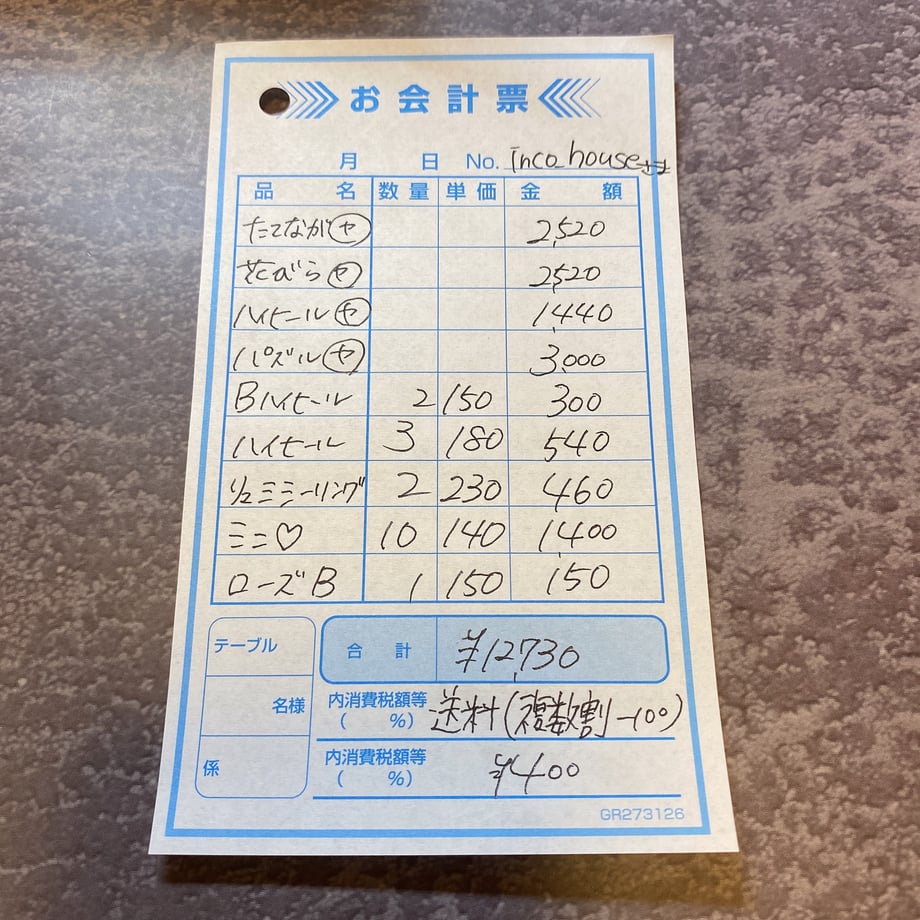 お会計票
月 日 No. inco_house さま
品名 数量 単価 金額
たてなが ㋳ 2,520
花びら ㋳ 2,520
ハイヒール ㋳ 1,440
パズル ㋳ 3,000
Bハイヒール 2 150 300
ハイヒール 3 180 540
リュミミーリング 2 230 460
ミニ♡ 10 140 1,400
ローズB 1 150 150
テーブル
合計 ¥12,730
名様
内消費税額等 ( %) 送料(複数割-100)
係
内消費税額等 ( %) ¥400
GR273126